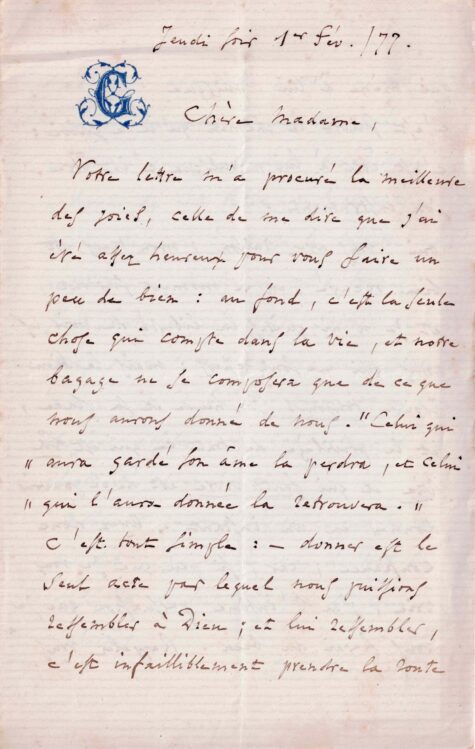 Jeudi soir 1er Fév. /77.
CG
Chère Madame,
Votre lettre m'a procuré la meilleure
des joies, celle de me dire que j'ai
été assez heureux pour vous faire un
peu de bien : au fond, c'est la seule
chose qui compte dans la vie, et notre
bagage ne se composera que de ce que
nous aurons donné de nous. "Celui qui
" aura gardé son âme la perdra, et celui
" qui l'aura donnée la retrouvera. "
C'est tout simple : — donner est le
seul acte par lequel nous puissions
ressembler à Dieu ; et lui ressembler,
c'est infailliblement prendre la route